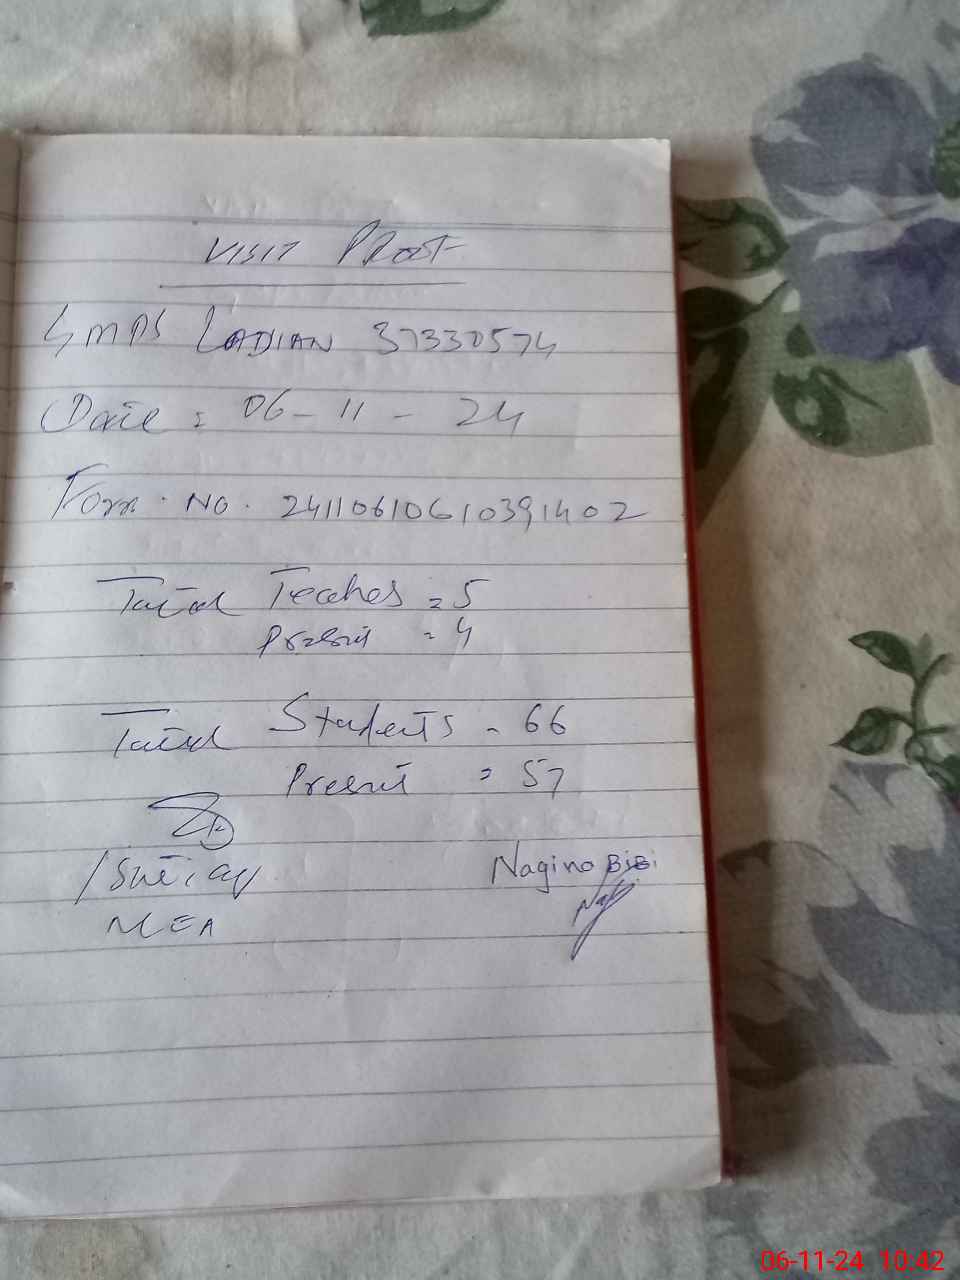 VISIT PROOF
GMPS LADIAN 37330574
Date = 06-11-24
Form. NO. 24110610610391402
Total Teaches = 5
Present = 4
Total Students - 66
Present = 57
Nagina BiBi
MEA
06-11-24 10:42